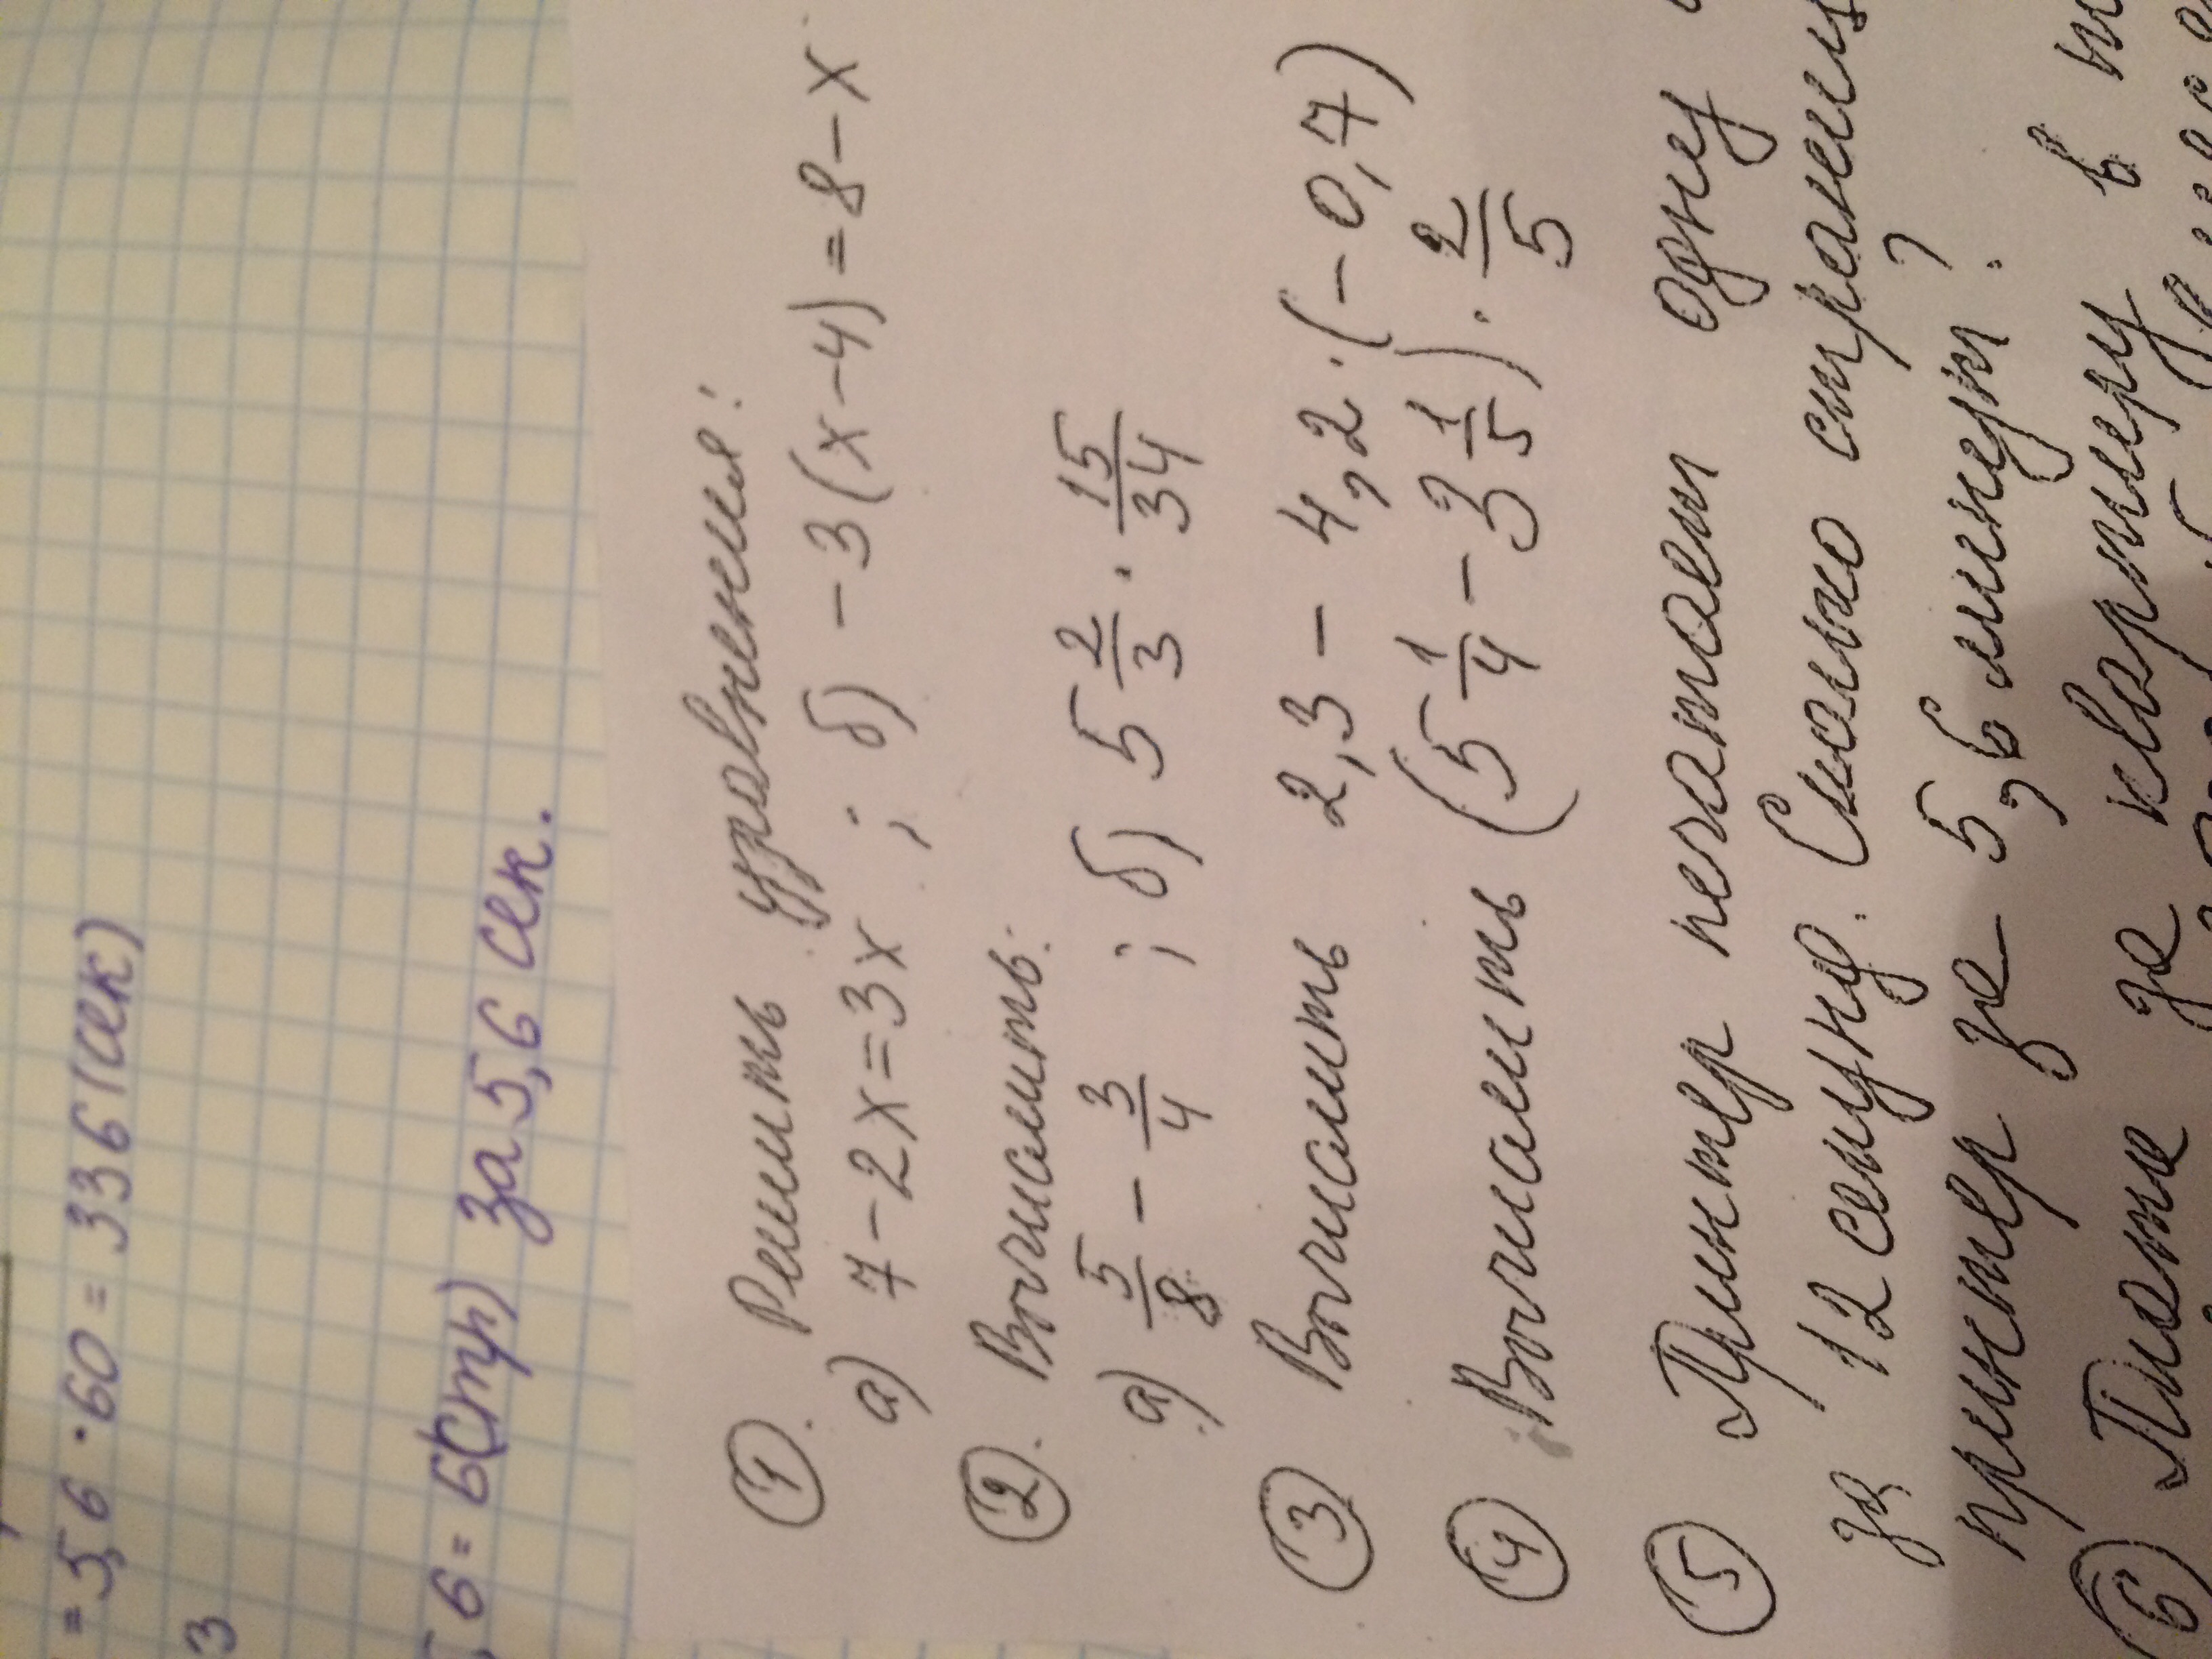 = 5,6 · 60 = 336 (сек)
3
6 = 6 (стр) за 5,6 сек.
① Решить уравнения:
а) 7 - 2x = 3x ; б) - 3(x - 4) = 8 - x
② Вычислить:
а) 5/8 - 3/4 ; б) 5 2/3 · 15/34
③ Вычислить 2,3 - 4,2 · (- 0,7)
④ Вычислить (5 1/4 - 3 1/5) · 2/5
⑤ Принтер печатает одну
за 12 секунд. Сколько страниц
принтер за 5,6 минут?
⑥ Плата за квартиру в